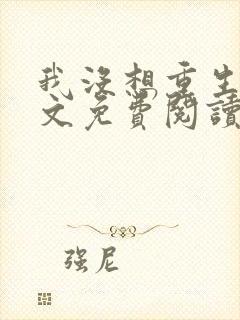 我沒想重生
文免費閱讀
强尼